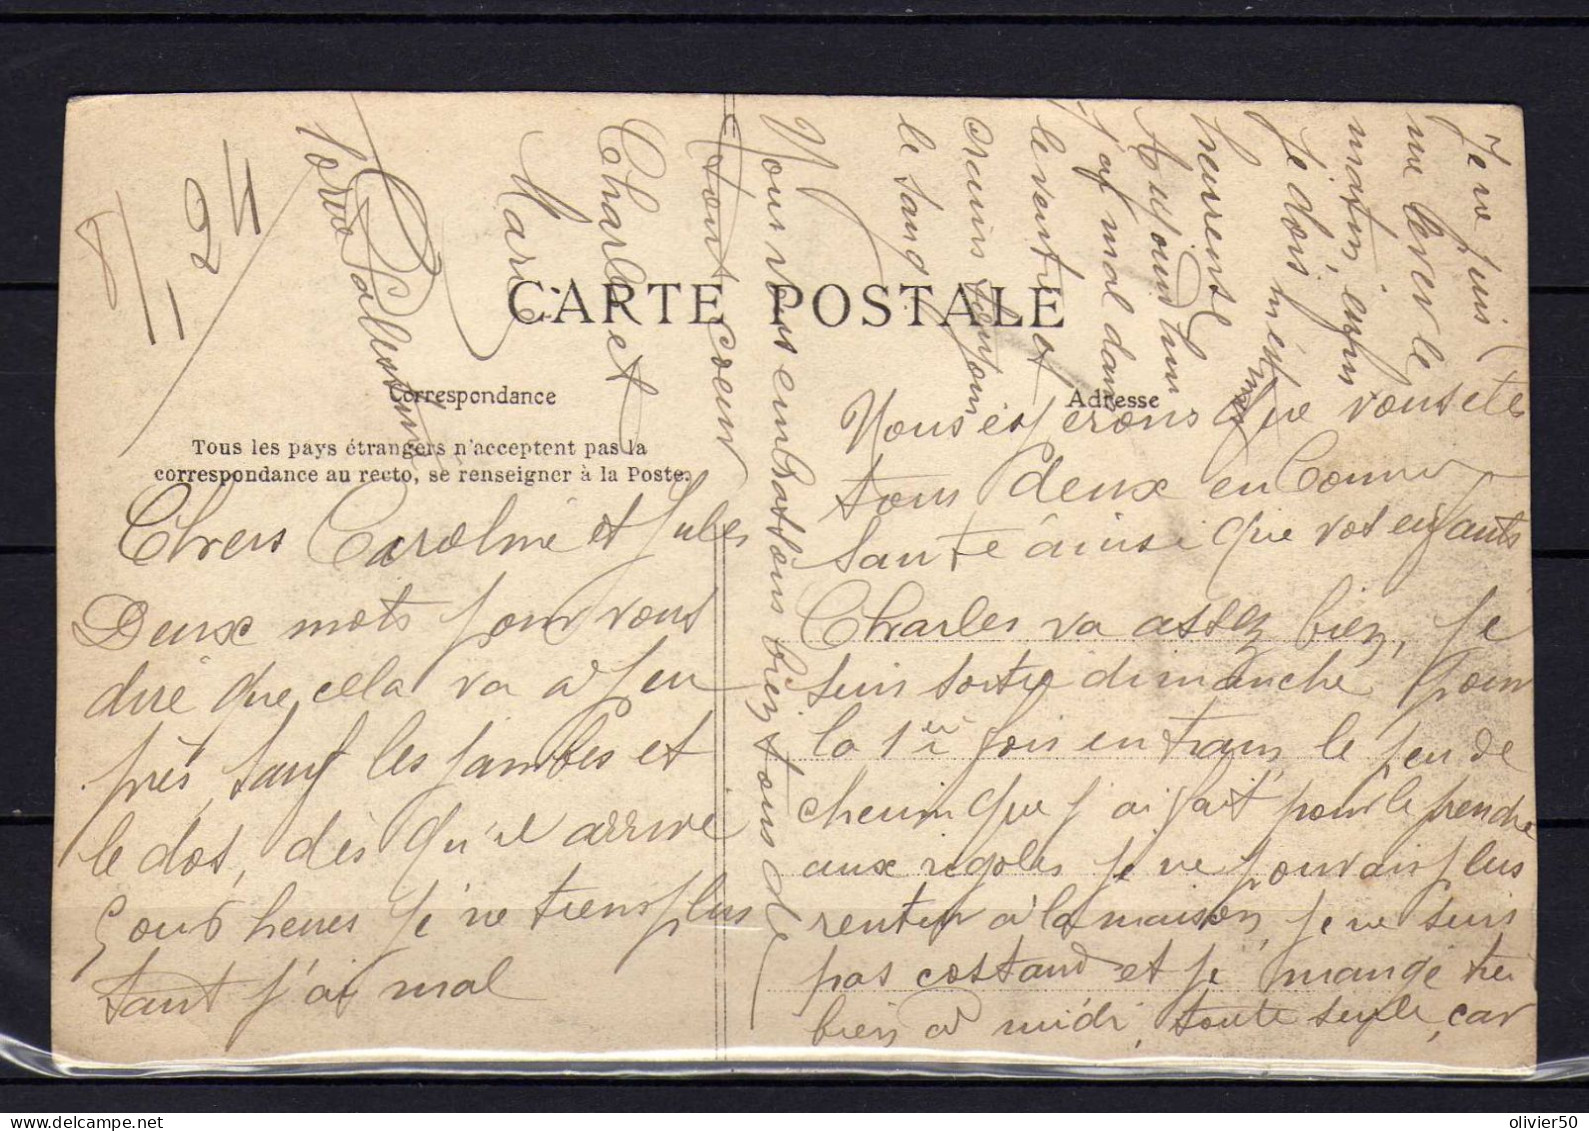 8/1 24
CARTE POSTALE
Correspondance
Adresse
Tous les pays étrangers n'acceptent pas la
correspondance au recto, se renseigner à la Poste.
Chers Caroline et Jules
Deux mots pour vous
dire que cela va à peu
près, sauf les jambes et
le dos, dès qu'il arrive
5 ou 6 heures je ne tiens plus
tant j'ai mal
Nous espérons que vous etes
tous deux en bonne
santé ainsi que vos enfants
Charles va assez bien, je
suis sortie dimanche pour
la 1er fois en tram, le peu de
chemin que j'ai fait pour le prendre
aux rigoles je ne pouvais plus
rentrer à la maison, je ne suis
pas costaud et je mange très
bien à midi, toute seule, car
Je ne puis
me lever le
matin, enfin
je dois m'es
heureuse
Aujourd'hui
j'ai mal dans
le ventre et
crains toujours
le sang
Nous vous embrassons bien tous de
tout coeur
Charles et